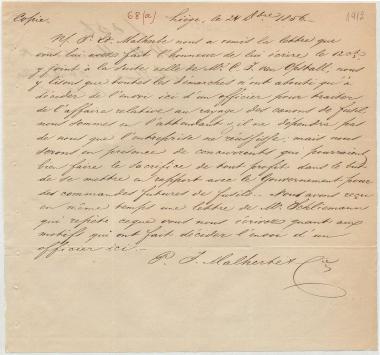 Copie.
68(a)
Liège, le 24 8bre 1856.
1912
M. P. J. Malherbe nous a remis la lettre que
vous lui avez fait l'honneur de lui écrire le 12 et
y joint à la suite celle de Mr. C. J. van nous
y lisons que toutes les démarches n'ont abouti qu'à
décider de l'envoi ici d'un officier pour traiter
de l'affaire relative au rayage des canons de fusils
nous sommes à l'attendant; il ne dépendra pas
de nous que l'entreprise ne réussisse, mais nous
serons en présence de concurrents qui pourraient
bien faire le sacrifice de tout profit dans le but
de se mettre en rapport avec le Gouvernement pour
ses commandes futures de fusils. Nous avons reçu
en même temps une lettre de Mr. Schliemann
qui répète ce que vous nous écrivez quant aux
motifs qui ont fait décider l'envoi d'un
officier ici.
P. J. Malherbe &